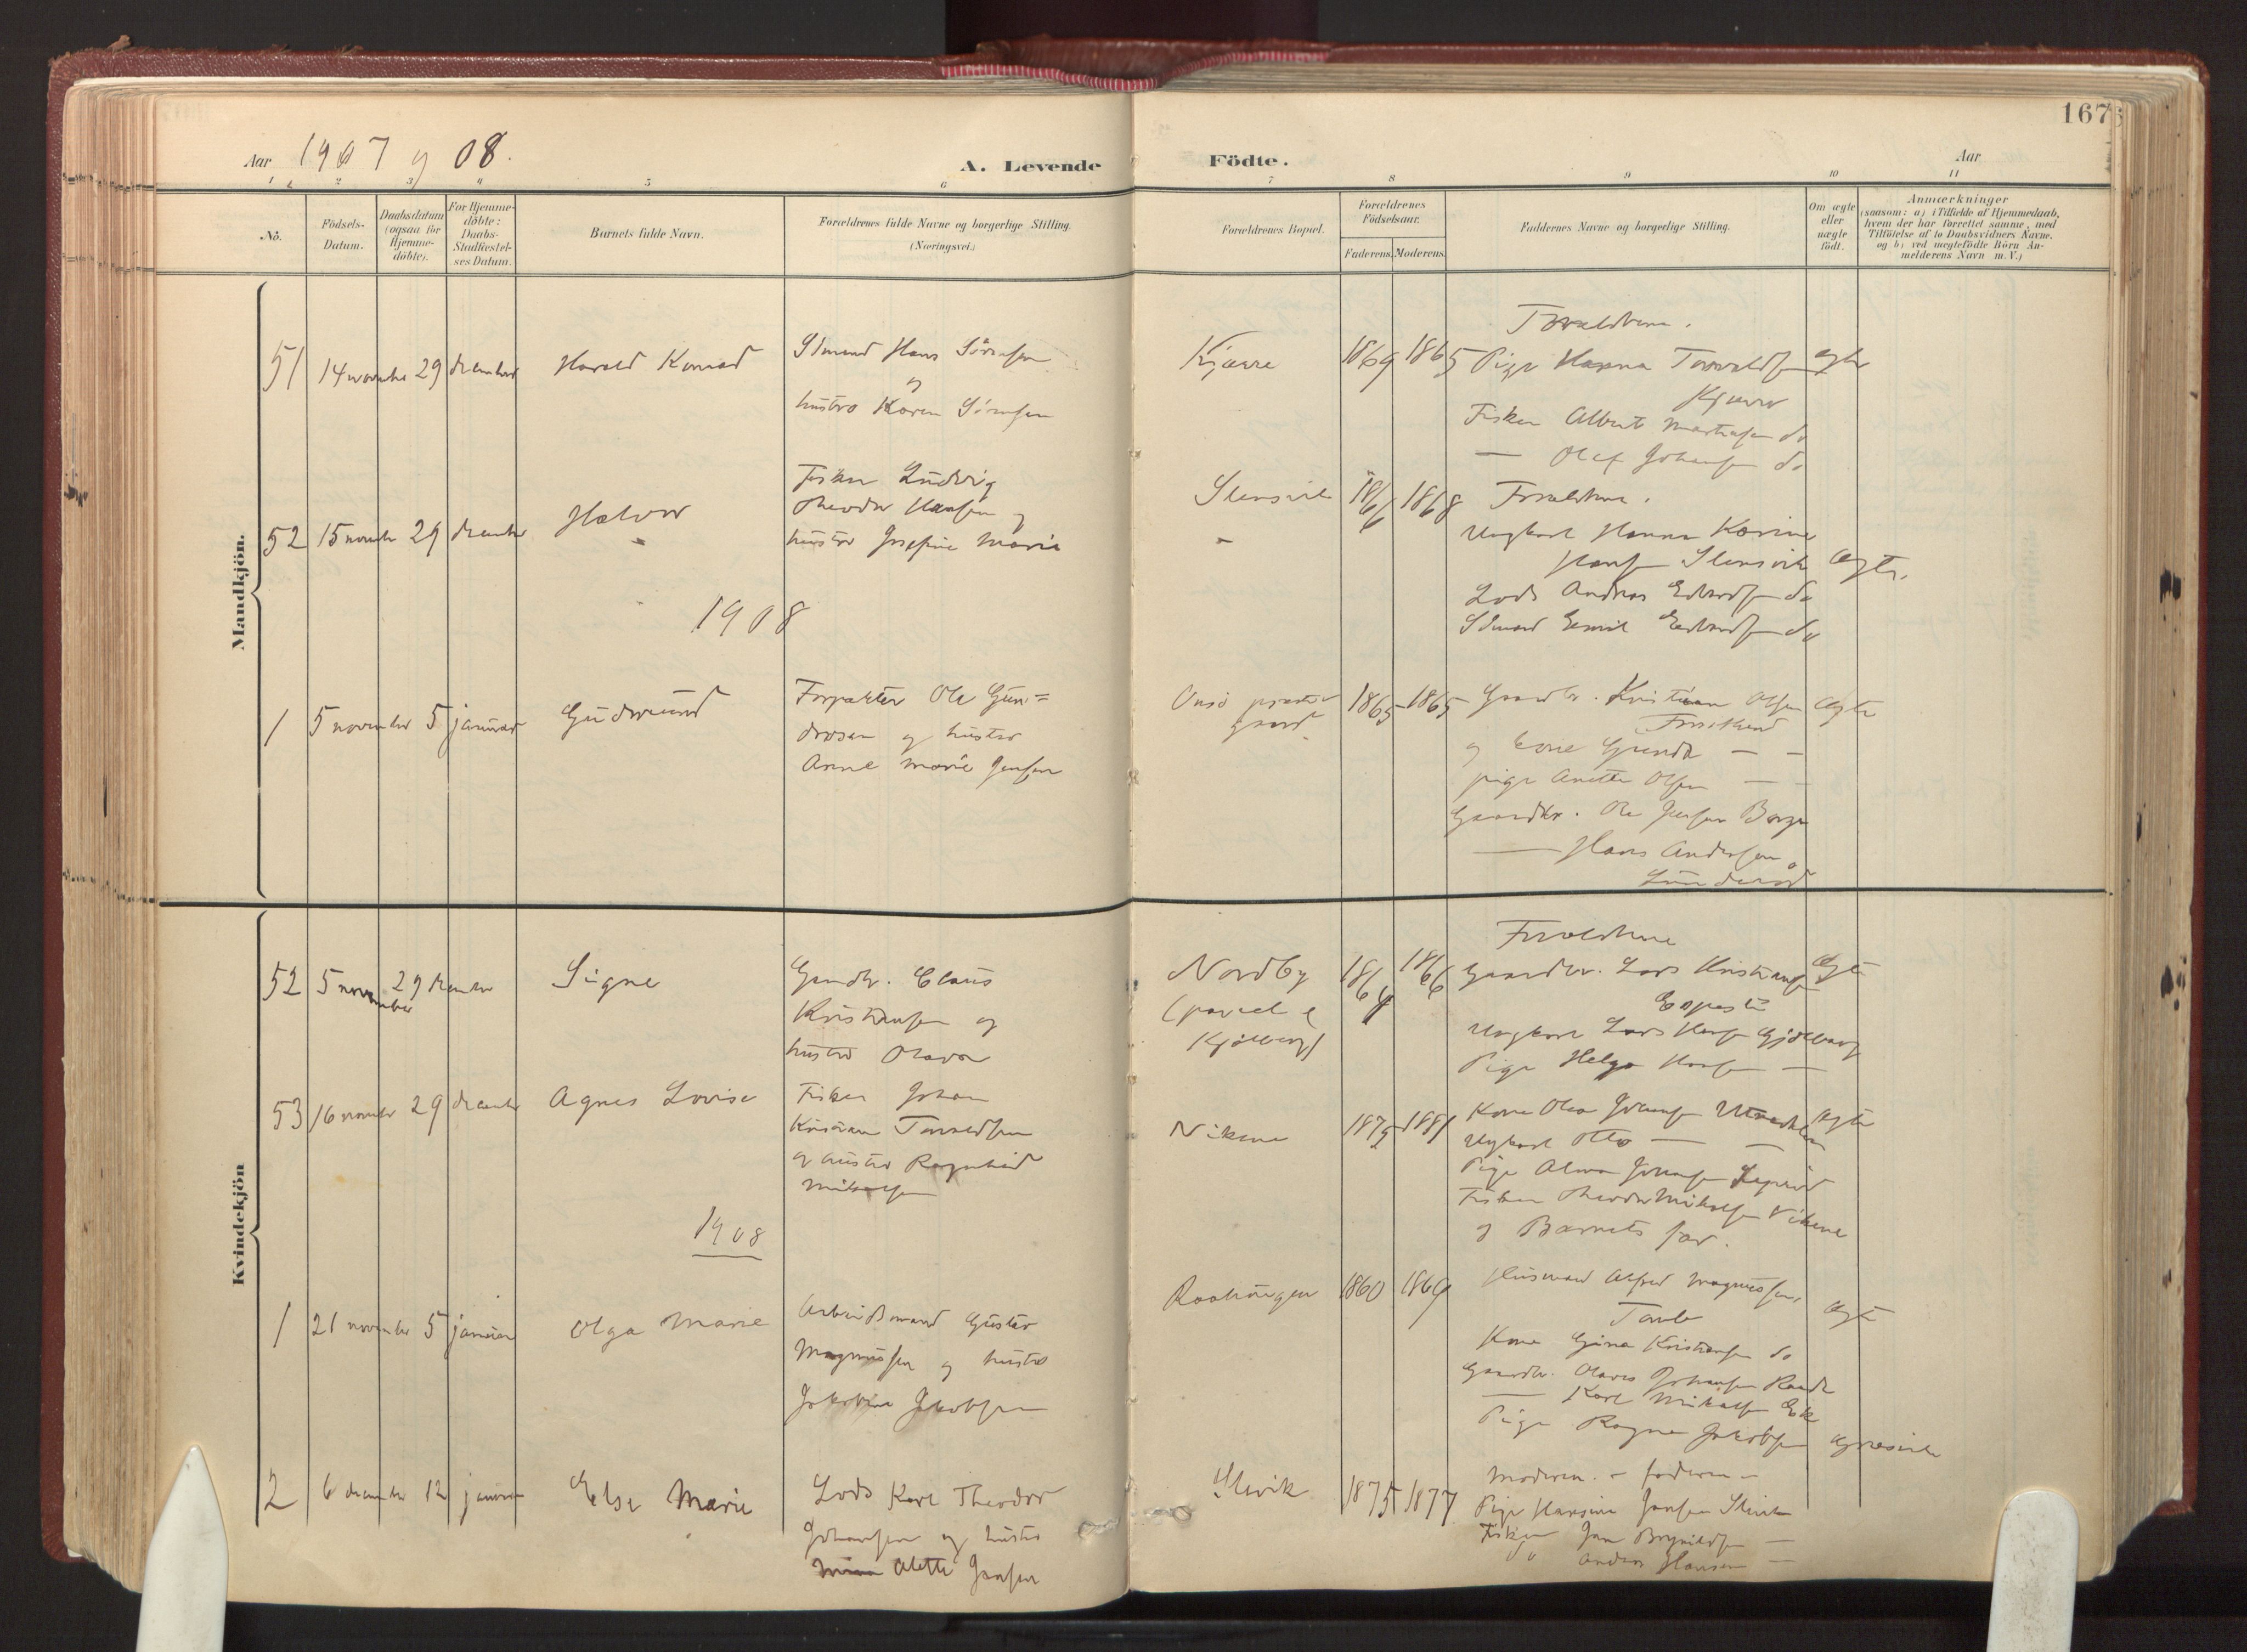 Aar 1907 og 08.
A. Levende Födte.
Aar
167
1 2 3 4 5 6 7 8 9 10 11
No.
Födsels-Datum.
Daabsdatum (ogsaa for Hjemme-döbte).
For Hjemme-döbte: Daabs-Stadfæstel-ses Datum.
Barnets fulde Navn.
Forældrenes fulde Navne og borgerlige Stilling.
(Næringsvei.)
Forældrenes Bopæl.
Forældrenes Födselsaar.
Faderens. Moderens.
Faddernes Navne og borgerlige Stilling.
Om ægte eller uægte födt.
Anmærkninger
(saasom: a) i Tilfælde af Hjemmedaab,
hvem der har forrettet samme, med
Tilföielse af to Daabsvidners Navne.
og b) ved uegtefödte Börn An-
melderens Navn m. V.)
Mandkjön.
51 14 november 29 december Harald Konrad
Sömand Hans Sörensen
og
hustro Karen Sörensen
Kjærre 1869 1865
Forældrene.
Pige Hanna Torvaldsen ægte
Kjærre
Fisker Albert Mathisen do
— Olaf Johansen do
52 15 november 29 december Halvor
Fisker Ludvig
Theodor Hansen og
hustro Josefine Marie
Slevik 1866 1868
Forældrene.
Ungkarl Hanna Karine
Hansen Slevik Ægte.
Lods Andreas Edvardsen do
Sömand Emil Edvardsen do
1908
1 5 november 5 januar Gudmund
Forpakter Ole Gun=
drosen og hustro
Anne Marie Jensen
Onsö præste
gaard 1865 1865
Gaardbr. Kristian Olsen Ægte
og kone Gunda — —
pige Anette Olsen — —
Gaardbr. Ole Jensen Borge
— Hans Andersen
Kvindekjön
52 5 november 29 december Signe
Gaardbr. Claus
Kristiansen og
hustro Olava
Nordby
(parcel af
Kjölberg) 1864 1866
Forældrene
Gaardbr. Lars Kristiansen Ægte
Ungkarl Lars Hansen Kjölberg
Pige Helga Hansen —
53 16 november 29 december Agnes Lovise
Fisker Johan
Kristian Torvaldsen
og hustro Ragnhild
Mikalsen
Vikene 1875 1881
Kone Olea Johansen Ægte
Ungkarl Otto — —
Pige Alma Johansen
Fisker Theodor Mikalsen Vikene
og Barnets far.
1908
1 21 november 5 januar Olga Marie
Arbeidsmand Gustav
Magnussen og hustro
Jakobine Jakobsen
1860 1869
Husmand Alfred Magnussen, Ægte
Kone Gina Kristiansen do
Gaardbr. Olaves Johansen Raade
— Karl Mikalsen Ek
Pige Ragna Jakobsen
2 6 december 12 januar Else Marie
Lods Karl Theodor
Johansen og hustro
Mina Alette Jansen
Slevik 1875 1877
Moderen. — faderen —
Pige Hansine Jansen Slevik
Fisker Jan Brynildsen —
" Andreas Hansen —